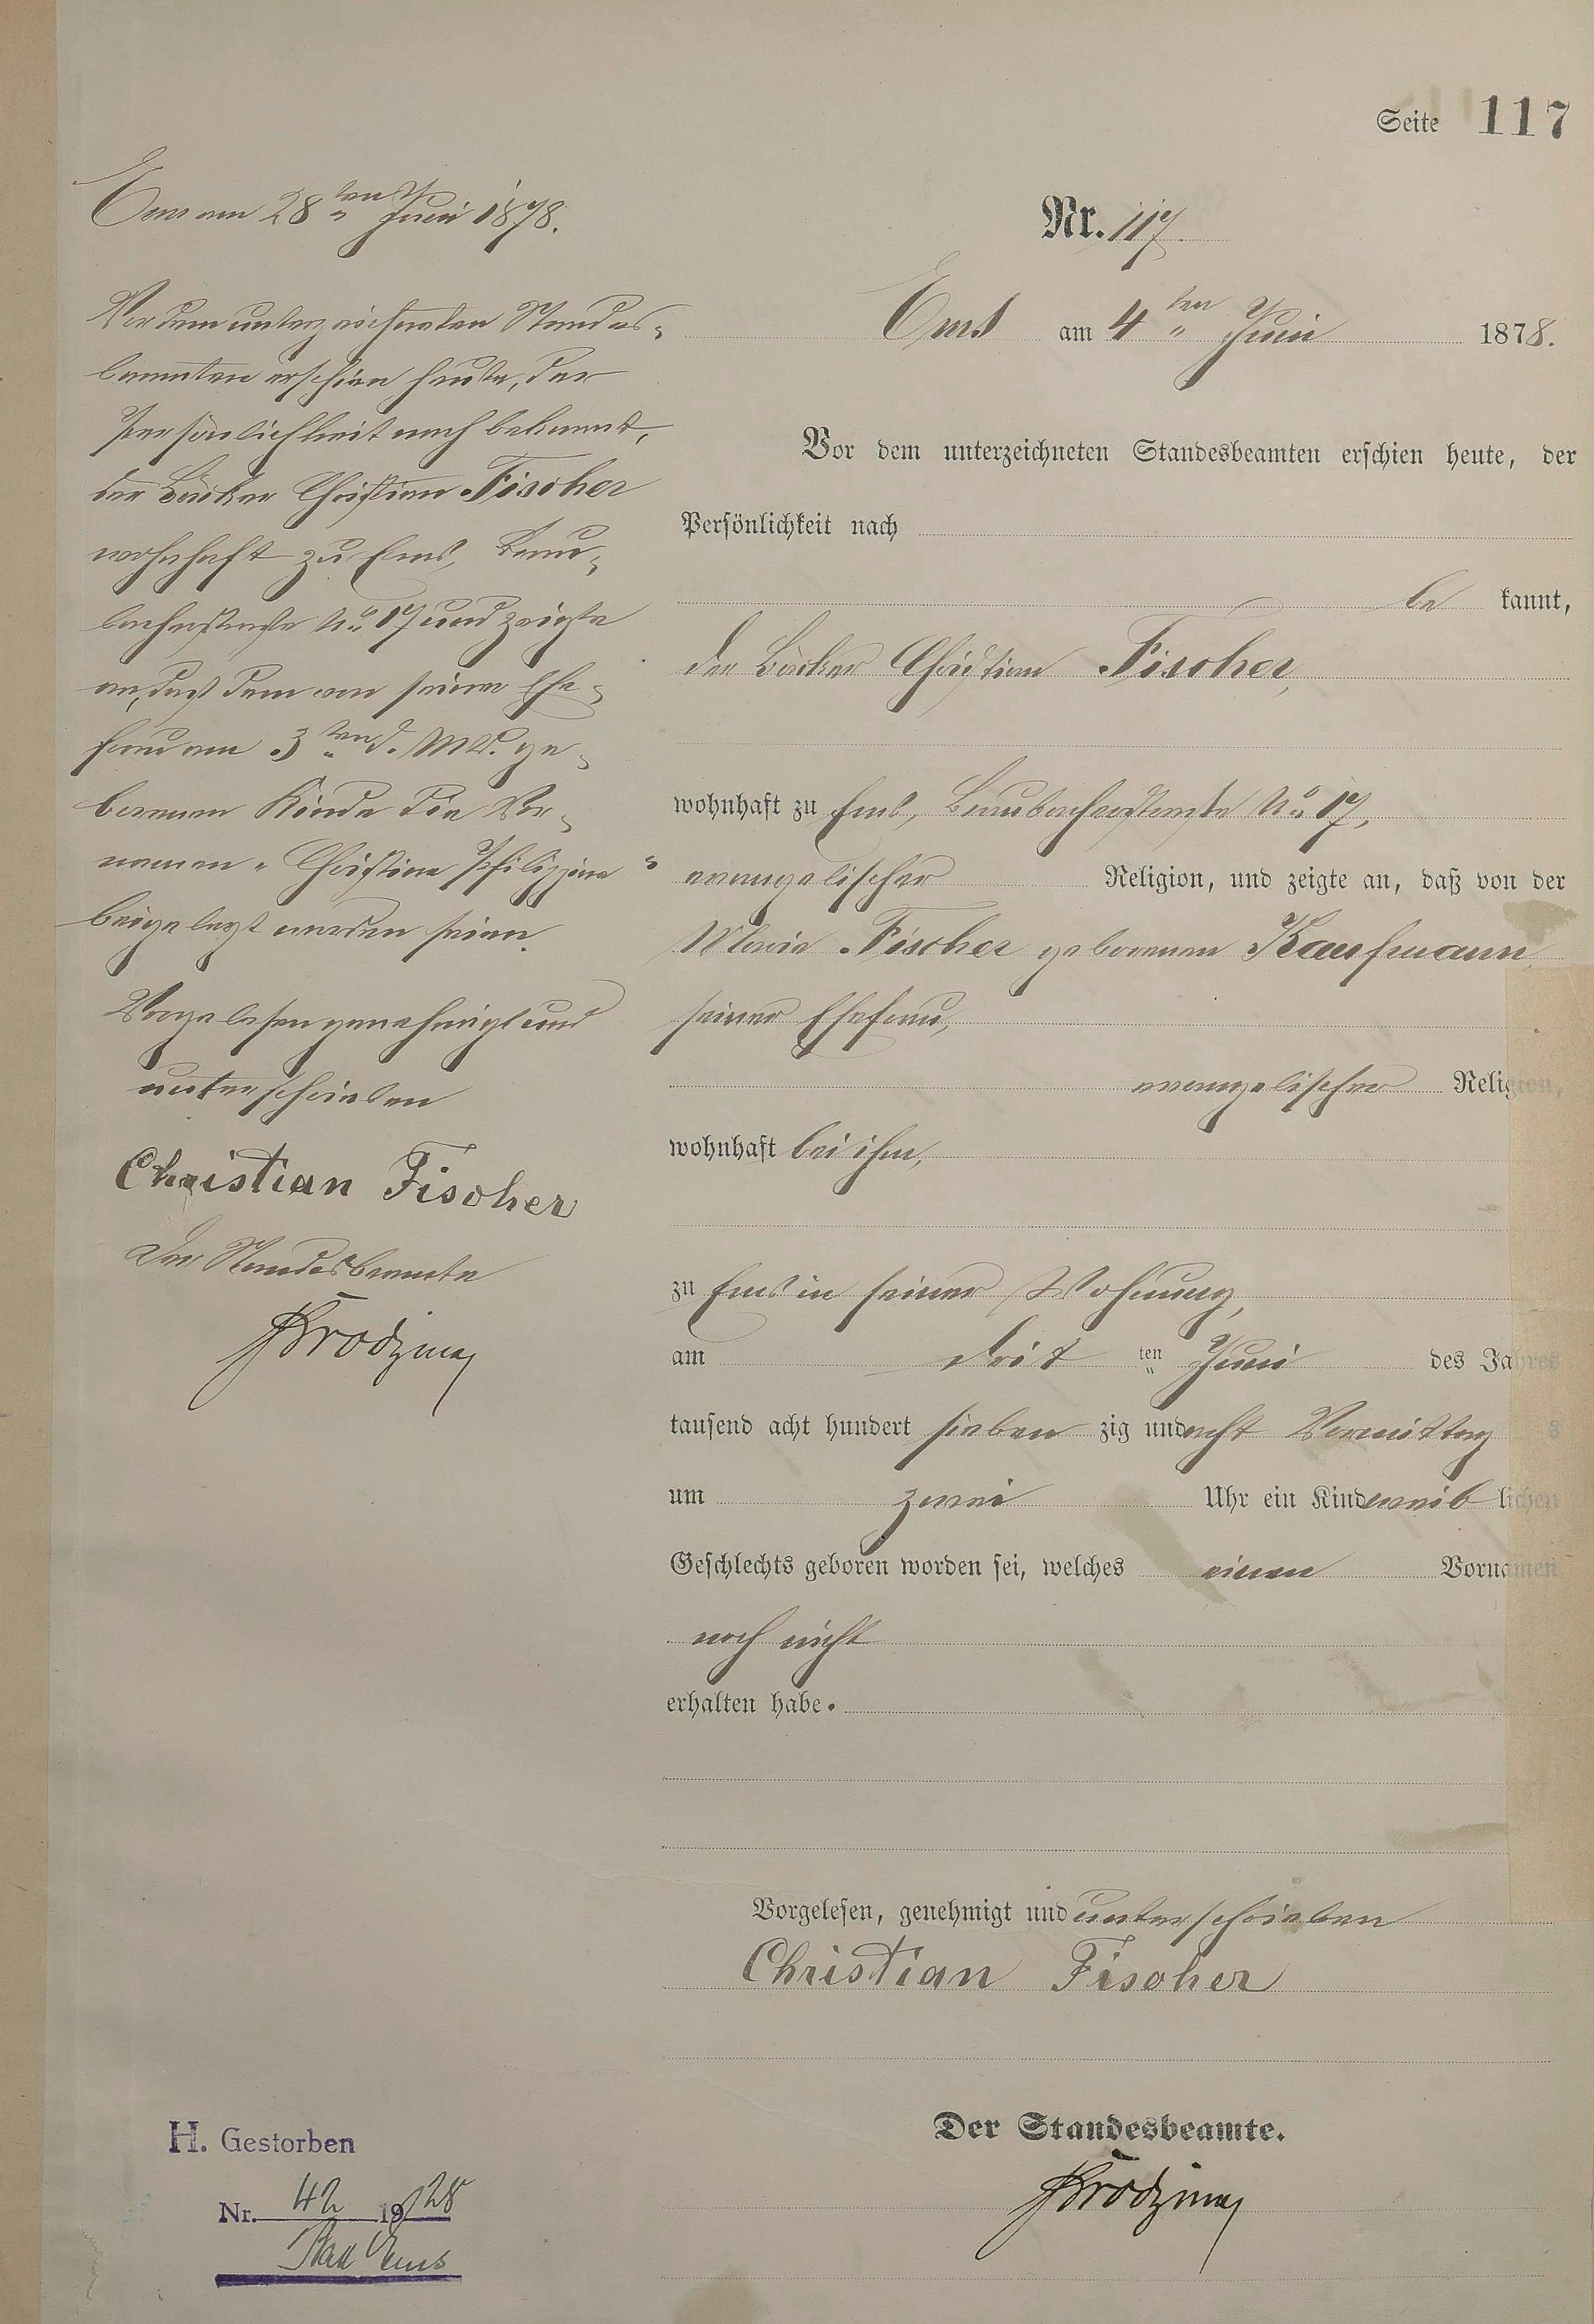 Seite 117
Ems am 28ten Juni 1878.
Vor dem unterzeichneten Standes-
beamten erschien heute, der
Persönlichkeit nach bekannt,
der Bäcker Christian Fischer
wohnhaft zu Ems, Brau-
bacherstraße No 17 und zeigte
an, daß dem von seiner Ehe-
frau am 3ten d. Mts. ge-
borenen Kinde die Vor-
namen "Christine Philippine"
beigelegt worden seien.
Vorgelesen genehmigt und
unterschrieben
Christian Fischer
Der Standesbeamte
H. Gestorben
Nr. 42 1928
Bad Ems
Nr. 117
Ems am 4ten Juni 1878.
Vor dem unterzeichneten Standesbeamten erschien heute, der
Persönlichkeit nach
be kannt,
der Bäcker Christian Fischer,
wohnhaft zu Ems, Braubacherstraße No 17,
evangelischer Religion, und zeigte an, daß von der
Marie Fischer geborenen Kaufmann,
seiner Ehefrau,
evangelischer Religion,
wohnhaft bei ihm,
zu Ems in seiner Wohnung,
am drit ten Juni des Jahres
tausend acht hundert sieben zig und acht Vormittag s
um zwei Uhr ein Kind weib lichen
Geschlechts geboren worden sei, welches einen Vornamen
noch nicht
erhalten habe.
Vorgelesen, genehmigt und unterschrieben
Christian Fischer
Der Standesbeamte.